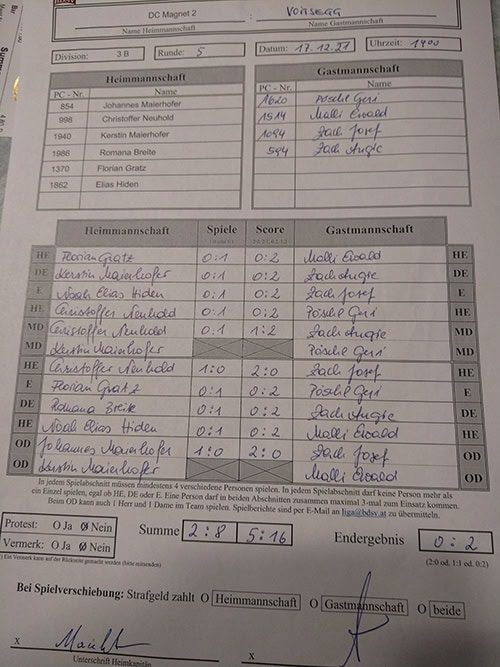 DC Magnet 2 : VOITSEGG
Name Heimmannschaft Name Gastmannschaft
Division: 3 B Runde: 5 Datum: 17.12.21 Uhrzeit: 1900
Heimmannschaft Gastmannschaft
PC - Nr. Name PC - Nr. Name
854 Johannes Maierhofer 1620 Pöschl Geri
998 Christoffer Neuhold 1514 Malli Ewald
1940 Kerstin Maierhofer 1094 Zach Josef
1986 Romana Breite 594 Zach Angie
1370 Florian Gratz
1862 Elias Hiden
Heimmannschaft Spiele Score Gastmannschaft
HE Florian Gratz 0:1 0:2 Malli Ewald HE
DE Kerstin Maierhofer 0:1 0:2 Zach Angie DE
E Noah Elias Hiden 0:1 0:2 Zach Josef E
HE Christoffer Neuhold 0:1 0:2 Pöschl Geri HE
MD Christoffer Neuhold 0:1 1:2 Zach Angie MD
MD Kerstin Maierhofer Pöschl Geri MD
HE Christoffer Neuhold 1:0 2:0 Zach Josef HE
E Florian Gratz 0:1 0:2 Pöschl Geri E
DE Romana Breite 0:1 0:2 Zach Angie DE
HE Noah Elias Hiden 0:1 0:2 Malli Ewald HE
OD Johannes Maierhofer 1:0 2:0 Zach Josef OD
OD Kerstin Maierhofer Malli Ewald OD
In jedem Spielabschnitt müssen mindestens 4 verschiedene Personen spielen. In jedem Spielabschnitt darf keine Person mehr als
ein Einzel spielen, egal ob HE, DE oder E. Eine Person darf in beiden Abschnitten zusammen maximal 3-mal zum Einsatz kommen.
Beim OD kann auch 1 Herr und 1 Dame im Team spielen. Spielberichte sind per E-Mail an liga@bdsv.at zu übermitteln.
Protest: O Ja O Nein Summe 2:8 5:16 Endergebnis 0:2
Vermerk: O Ja O Nein (2:0 od. 1:1 od. 0:2)
) Ein Vermerk kann auf der Rückseite gemacht werden (bitte mitsenden)
Bei Spielverschiebung: Strafgeld zahlt O Heimmannschaft O Gastmannschaft O beide
x x
Unterschrift Heimkapitän